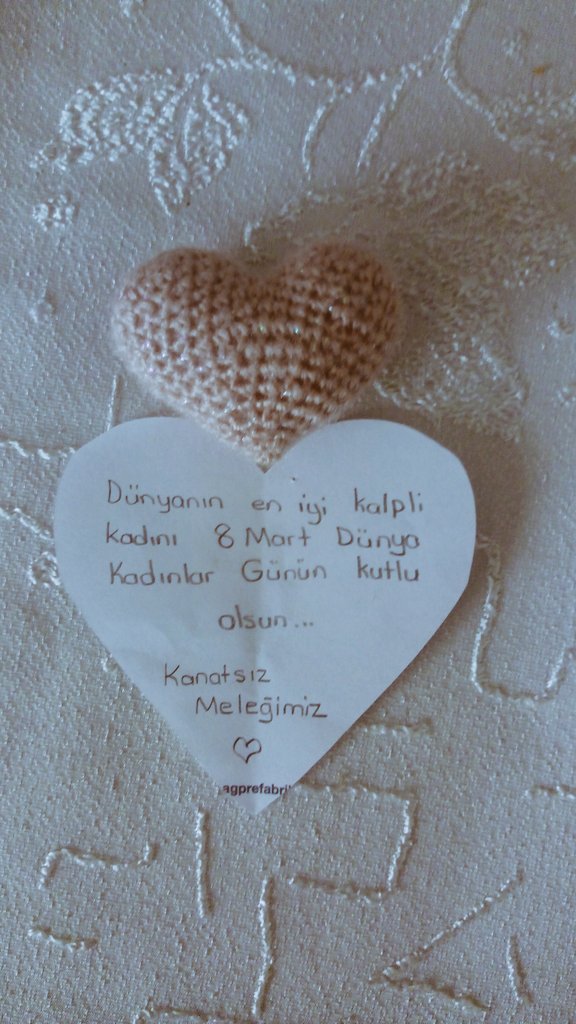 Dünyanın en iyi kalpli
kadını 8 Mart Dünya
Kadınlar Günün kutlu
olsun...
Kanatsız
Meleğimiz
agprefabri